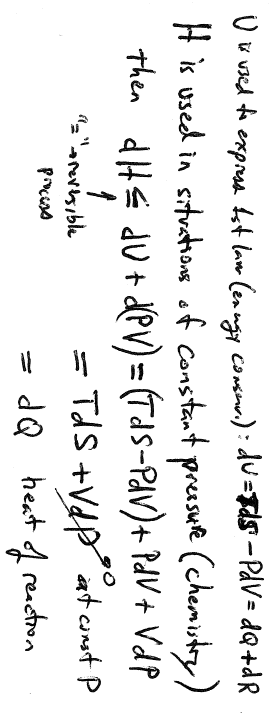 U is used to express 1st law (energy conserv.): dU = TdS - PdV = dQ + dR
H is used in situations of constant pressure (chemistry)
then dH ≤ dU + d(PV) = (TdS - PdV) + PdV + VdP
"=" → reversible process
= TdS + VdP⁰ at const P
= dQ heat of reaction